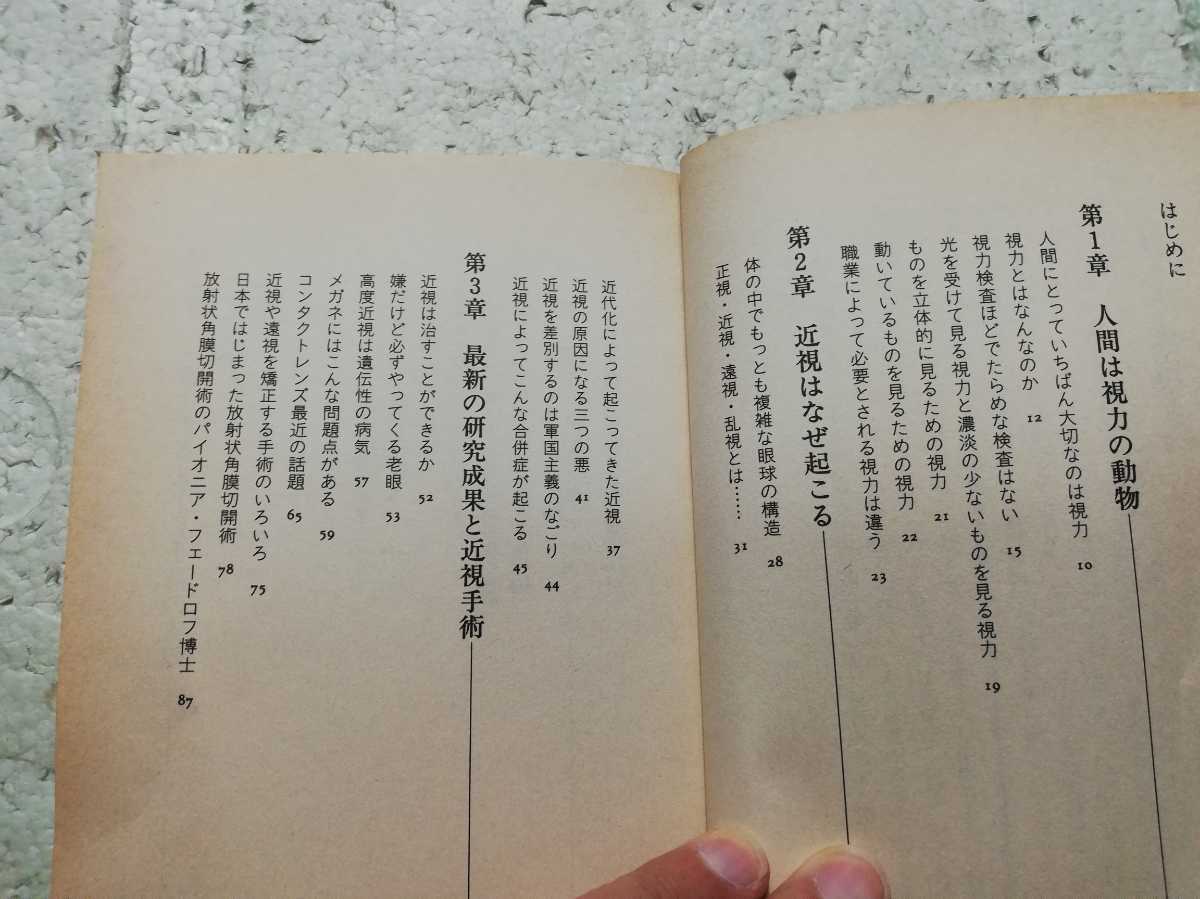 はじめに
第1章 人間は視力の動物
人間にとっていちばん大切なのは視力 10
視力とはなんなのか 12
視力検査ほどでたらめな検査はない 15
光を受けて見る視力と濃淡の少ないものを見る視力 19
ものを立体的に見るための視力 21
動いているものを見るための視力 22
職業によって必要とされる視力は違う 23
第2章 近視はなぜ起こる
体の中でもっとも複雑な眼球の構造 28
正視・近視・遠視・乱視とは…… 31
近代化によって起こってきた近視 37
近視の原因になる三つの悪 41
近視を差別するのは軍国主義のなごり 44
近視によってこんな合併症が起こる 45
第3章 最新の研究成果と近視手術
近視は治すことができるか 52
嫌だけど必ずやってくる老眼 53
高度近視は遺伝性の病気 57
メガネにはこんな問題点がある 59
コンタクトレンズ最近の話題 65
近視や遠視を矯正する手術のいろいろ 75
日本ではじまった放射状角膜切開術 78
放射状角膜切開術のパイオニア・フェードロフ博士 87